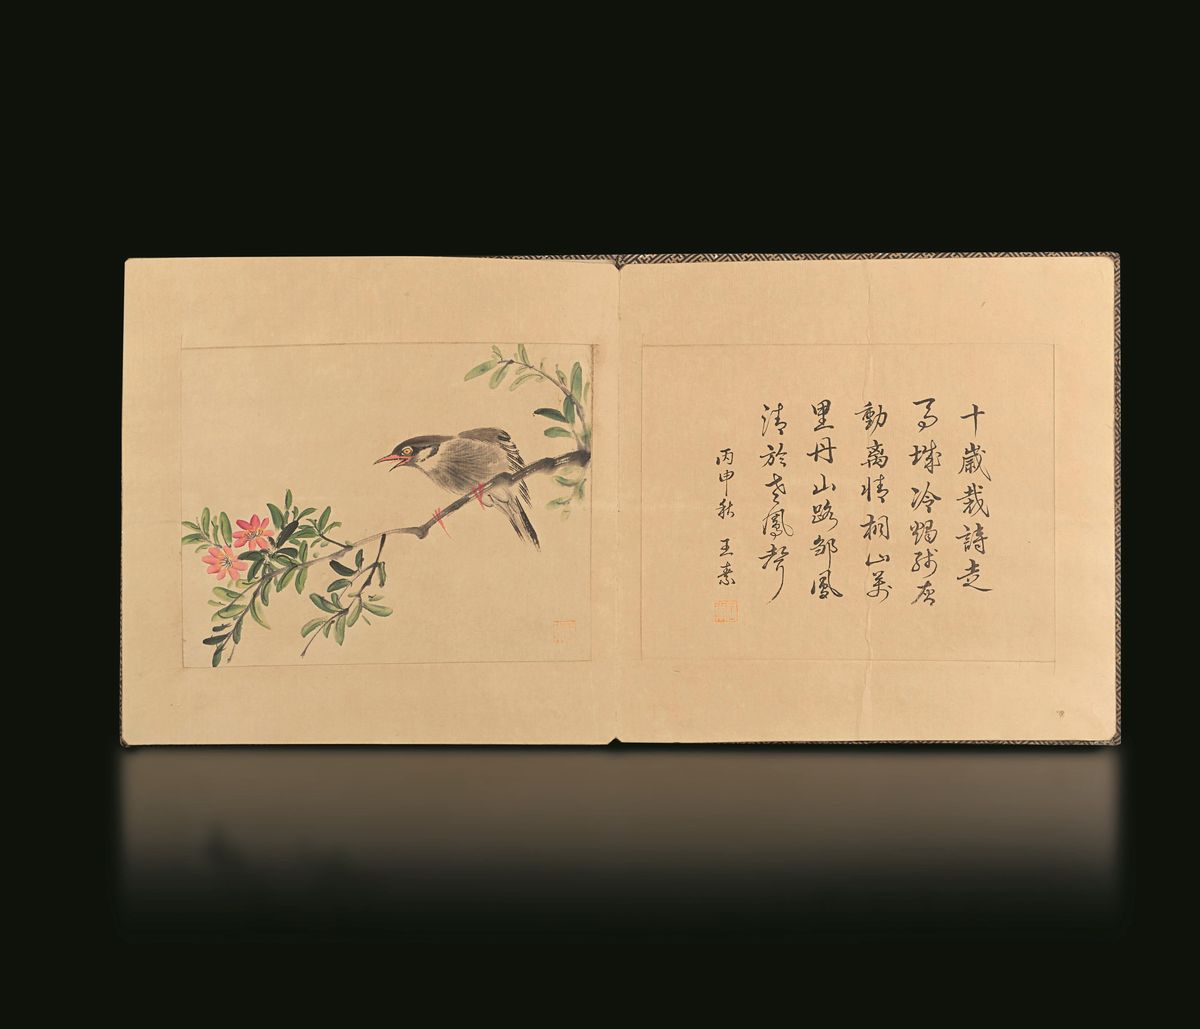 十歲栽詩走
馬城冷燭殘灰
動离情桐山萬
里丹山路邹鳳
清於老鳳聲
丙申秋 王素